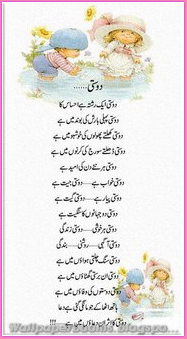 دوستی......
دوستی ایک رشتہ ہے احساس کا
دوستی پہلی بارش کی بوند میں ہے
دوستی کھلتے پھولوں کی خوشبو میں ہے
دوستی ڈھلتے سورج کی کرنوں میں ہے
دوستی ہر نئے دن کی امید ہے
دوستی خواب ہے... دوستی جیت ہے
دوستی پیار ہے... دوستی گیت ہے
دوستی دو جہانوں کا سنگیت ہے
دوستی ہر خوشی... دوستی زندگی
دوستی آگہی... روشنی... بندگی
دوستی سنگ چلتی ہواؤں میں ہے
دوستی ان برستی گھٹاؤں میں ہے
دوستی دوستوں کی وفاؤں میں ہے
ہاتھ اٹھا کے جو مانگی گئی ہے دعا
دوستی کا اثر ان دعاؤں میں ہے...!!!